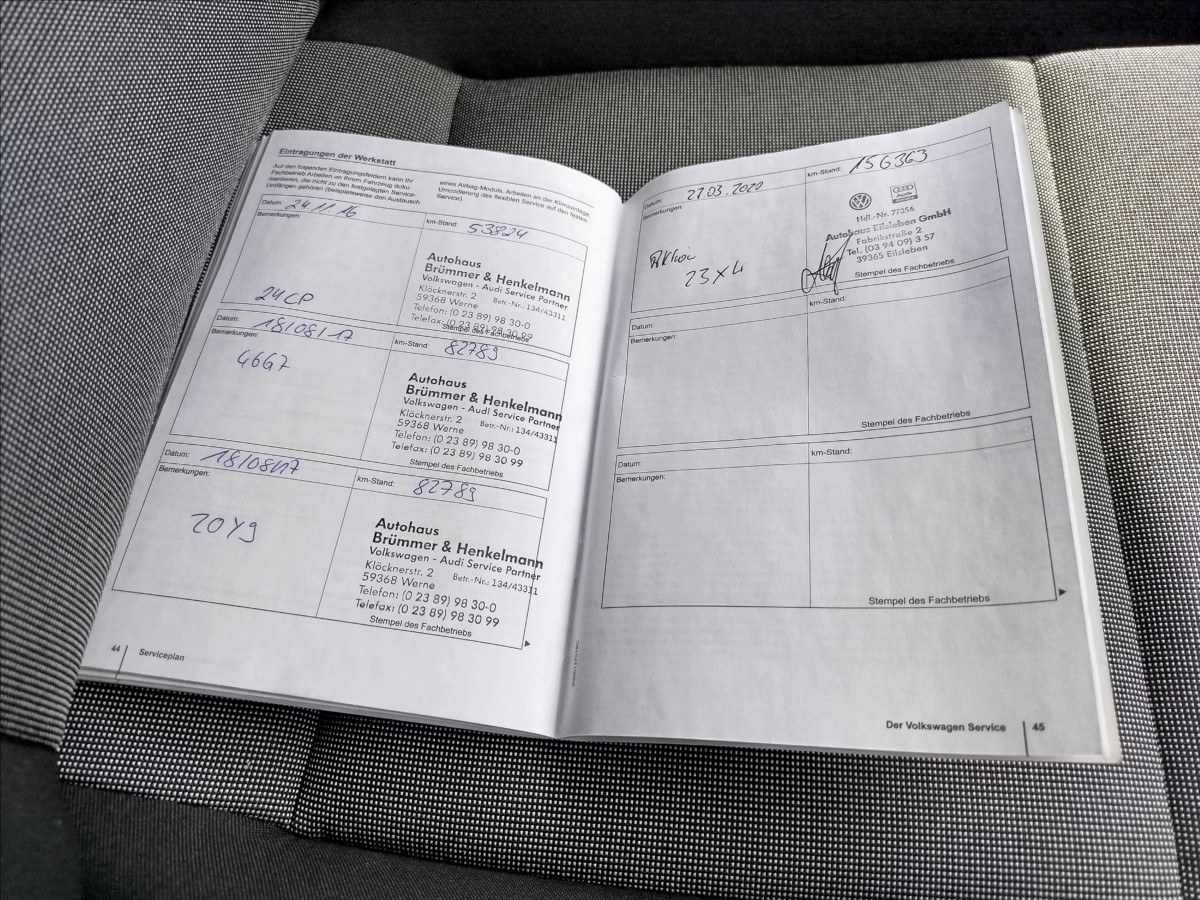 Eintragungen der Werkstatt
Auf den folgenden Eintragungsfeldern kann Ihr
Fachbetrieb Arbeiten an Ihrem Fahrzeug doku-
mentieren, die nicht zu den festgelegten Service-
Umfängen gehören (beispielsweise den Austausch
eines Airbag-Moduls, Arbeiten an der Klimaanlage,
Umcodierung des flexiblen Service auf den festen
Service).
Datum: 24.11.16
km-Stand: 53824
Bemerkungen:
24CP
Autohaus
Brümmer & Henkelmann
Volkswagen - Audi Service Partner
Klöcknerstr. 2
59368 Werne Betr.-Nr.: 134/43311
Telefon: (0 23 89) 98 30-0
Telefax: (0 23 89) 98 30 99
Stempel des Fachbetriebs
Datum: 18/08/17
km-Stand: 82789
Bemerkungen:
46G7
Autohaus
Brümmer & Henkelmann
Volkswagen - Audi Service Partner
Klöcknerstr. 2
59368 Werne Betr.-Nr.: 134/43311
Telefon: (0 23 89) 98 30-0
Telefax: (0 23 89) 98 30 99
Stempel des Fachbetriebs
Datum: 18/08/17
km-Stand: 82789
Bemerkungen:
20Y9
Autohaus
Brümmer & Henkelmann
Volkswagen - Audi Service Partner
Klöcknerstr. 2
59368 Werne Betr.-Nr.: 134/43311
Telefon: (0 23 89) 98 30-0
Telefax: (0 23 89) 98 30 99
Stempel des Fachbetriebs
44 Serviceplan
Datum: 27.03.2020
km-Stand: 156363
Bemerkungen:
23X4
Hdl.-Nr. 77356
Autohaus Eilsleben GmbH
Fabrikstraße 2
Tel. (03 94 09) 3 57
39365 Eilsleben
Stempel des Fachbetriebs
Datum:
km-Stand:
Bemerkungen:
Stempel des Fachbetriebs
Datum:
km-Stand:
Bemerkungen:
Stempel des Fachbetriebs
Der Volkswagen Service 45